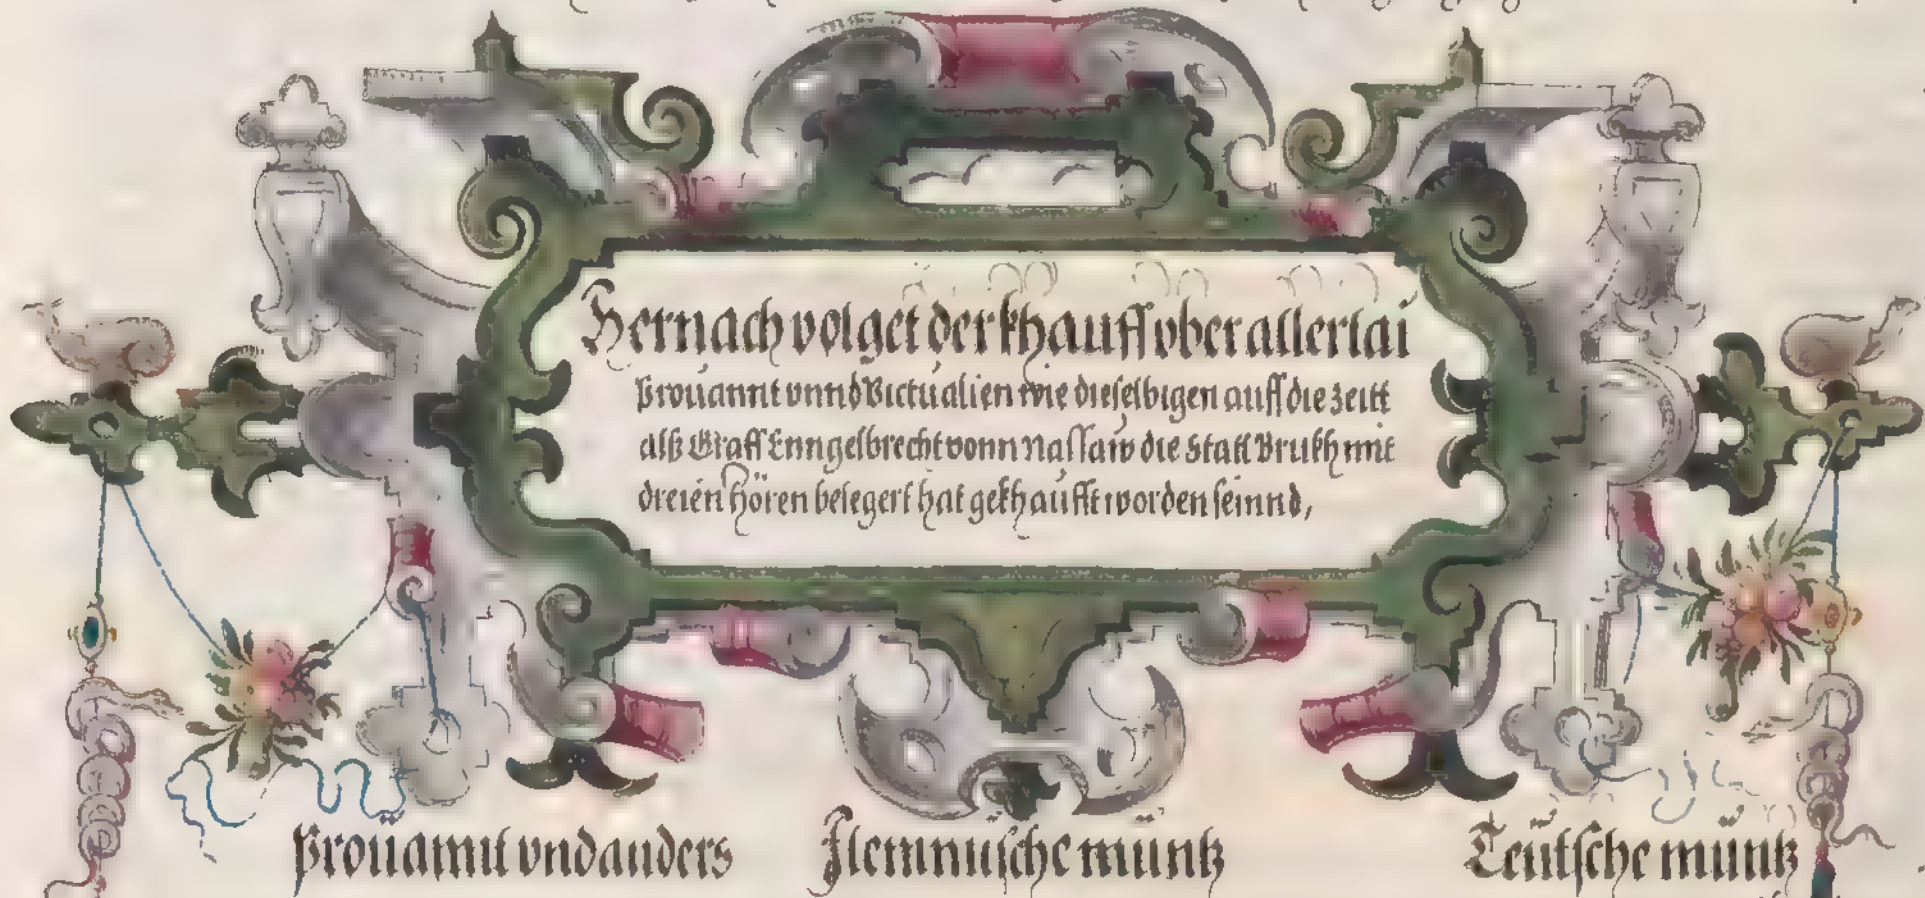 Hernach volget der khauff vber allerlai
Prouannt vnnd Victualien wie dieselbigen auff die zeitt
alß Graff Enngelbrecht vonn Nassaw die Statt Brukh mit
dreien hören belegert hat gekhaufft worden seinnd,
Prouannt vnd anders Flemmische müntz Teütsche müntz